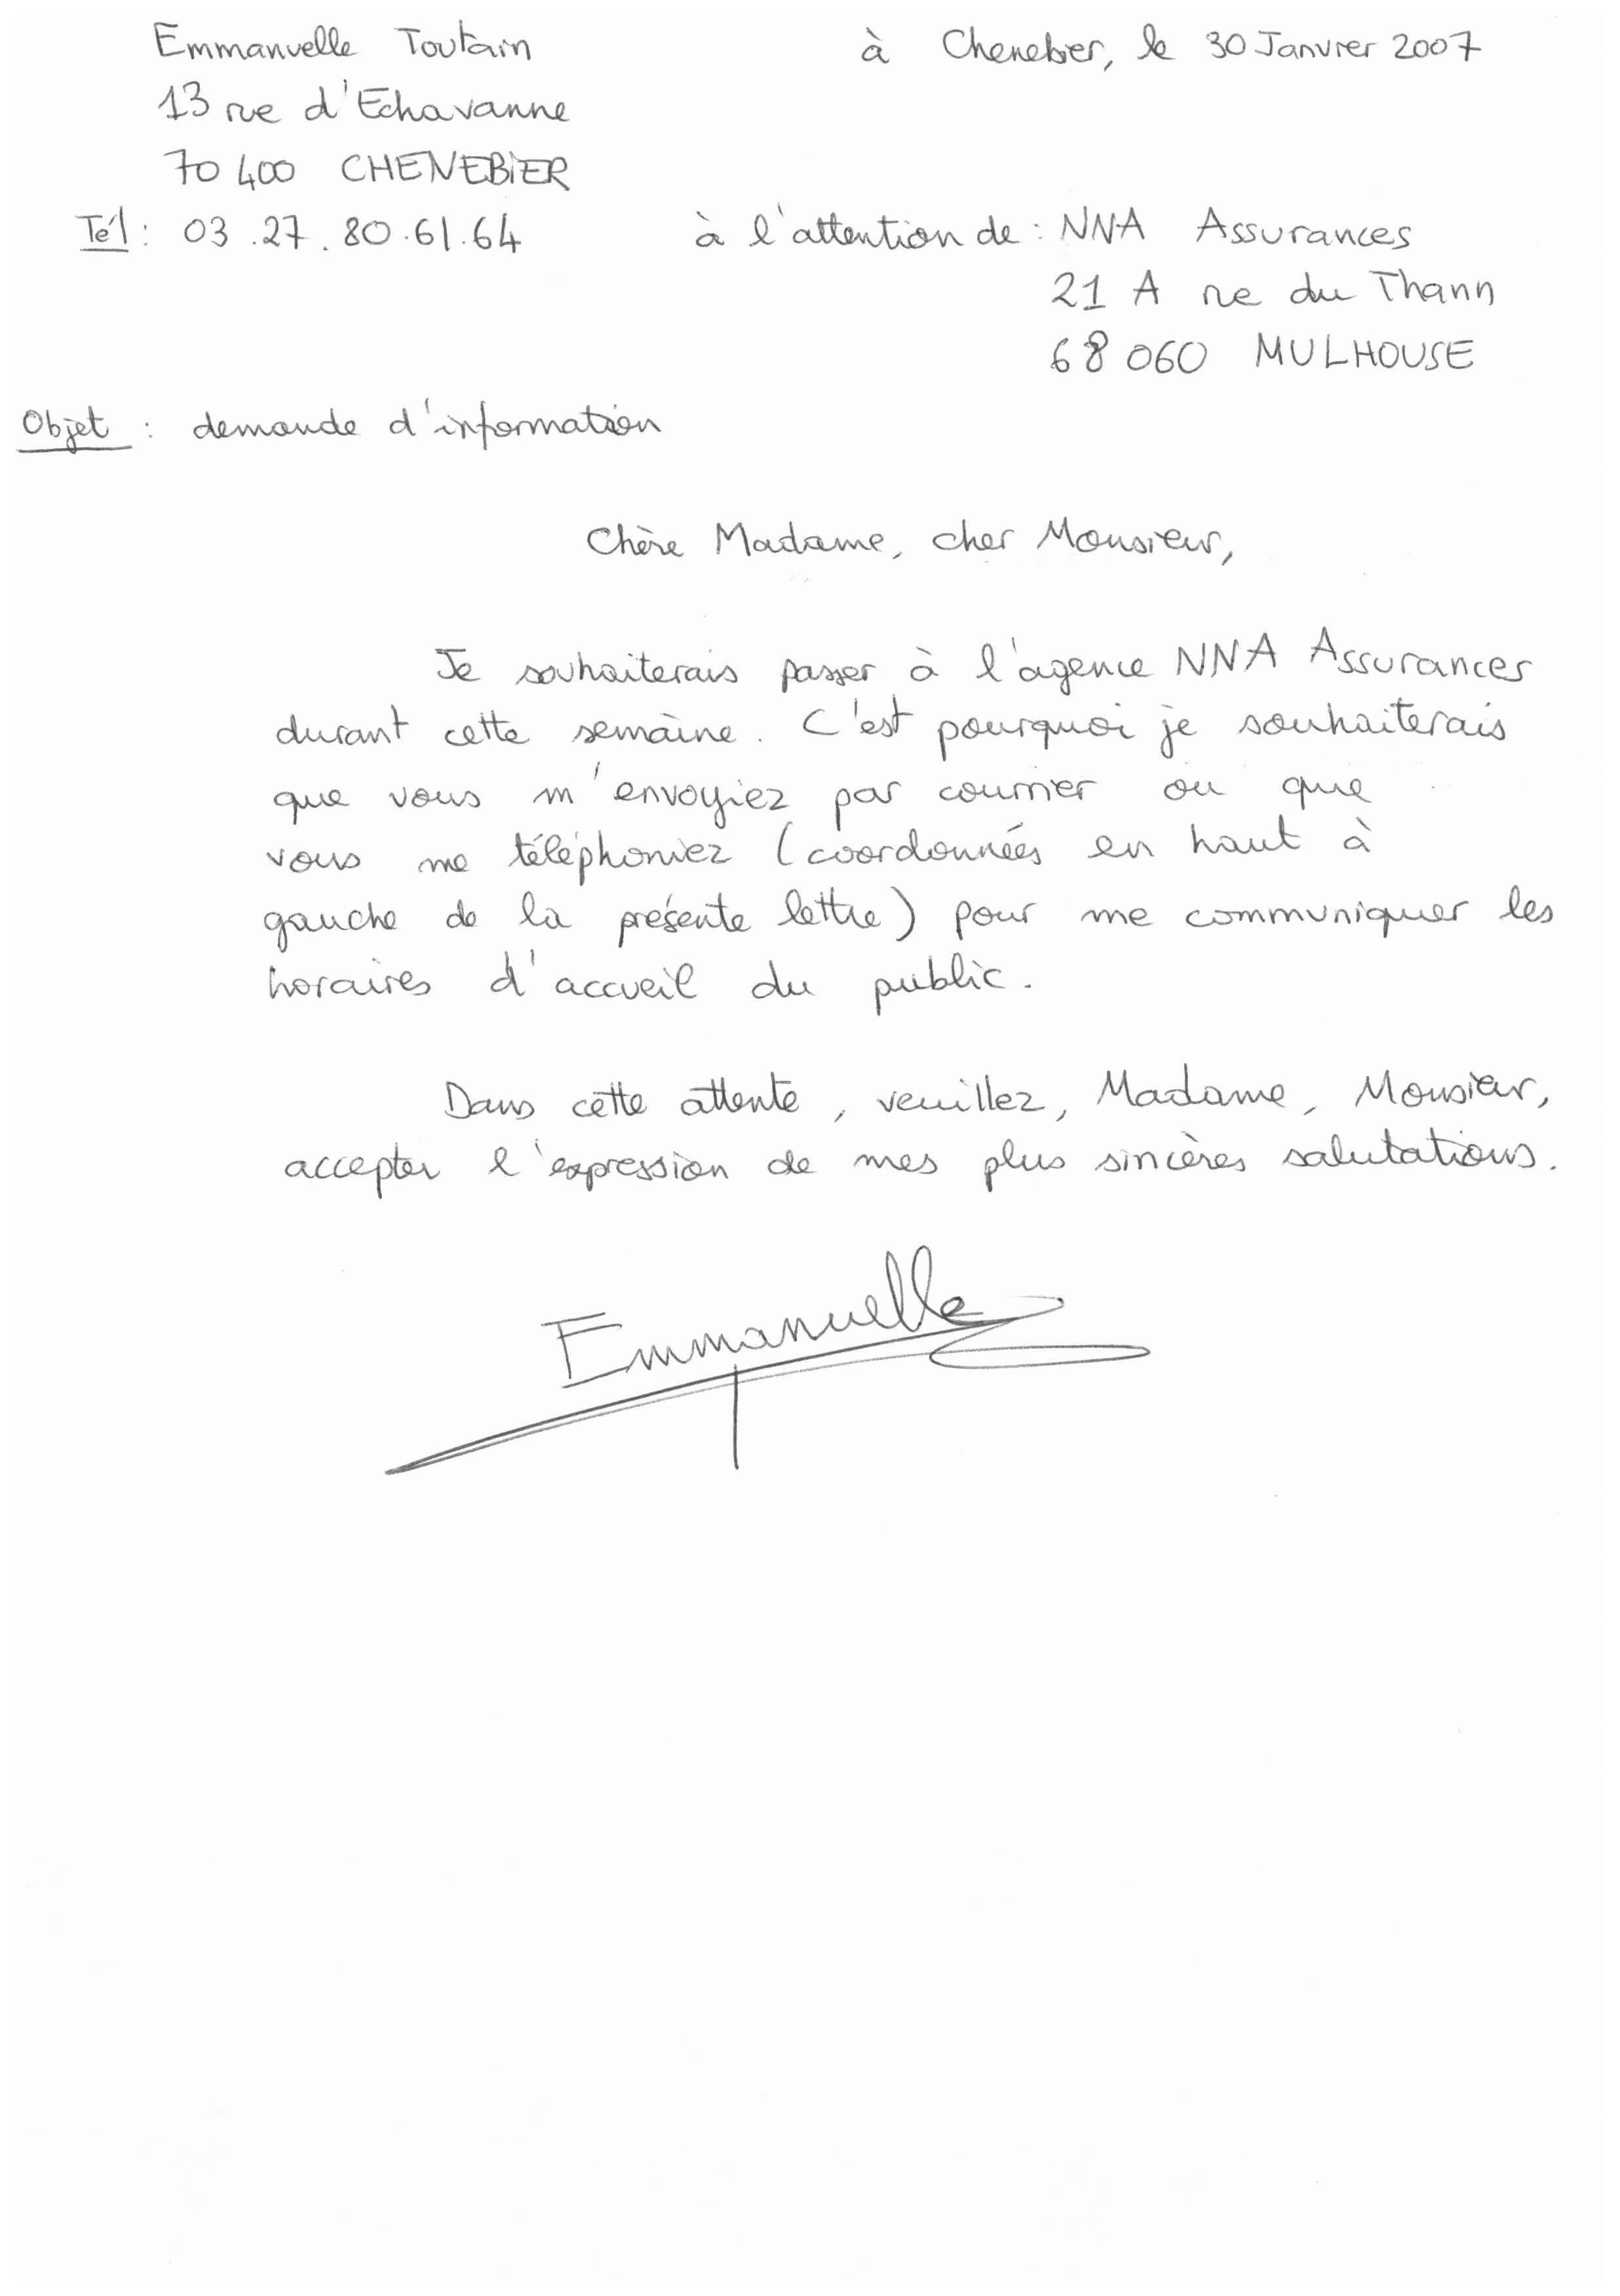 Emmanuelle Toutain
à Chenebier, le 30 Janvier 2007
13 rue d'Echavanne
70 400 CHENEBIER
Tél : 03.27.80.61.64
à l'attention de : NNA Assurances
21 A rue du Thann
68 060 MULHOUSE
Objet : demande d'information
Chère Madame, cher Monsieur,
Je souhaiterais passer à l'agence NNA Assurances
durant cette semaine. C'est pourquoi je souhaiterais
que vous m'envoyiez par courrier ou que
vous me téléphoniez (coordonnées en haut à
gauche de la présente lettre) pour me communiquer les
horaires d'accueil du public.
Dans cette attente, veuillez, Madame, Monsieur,
accepter l'expression de mes plus sincères salutations.
Emmanuelle